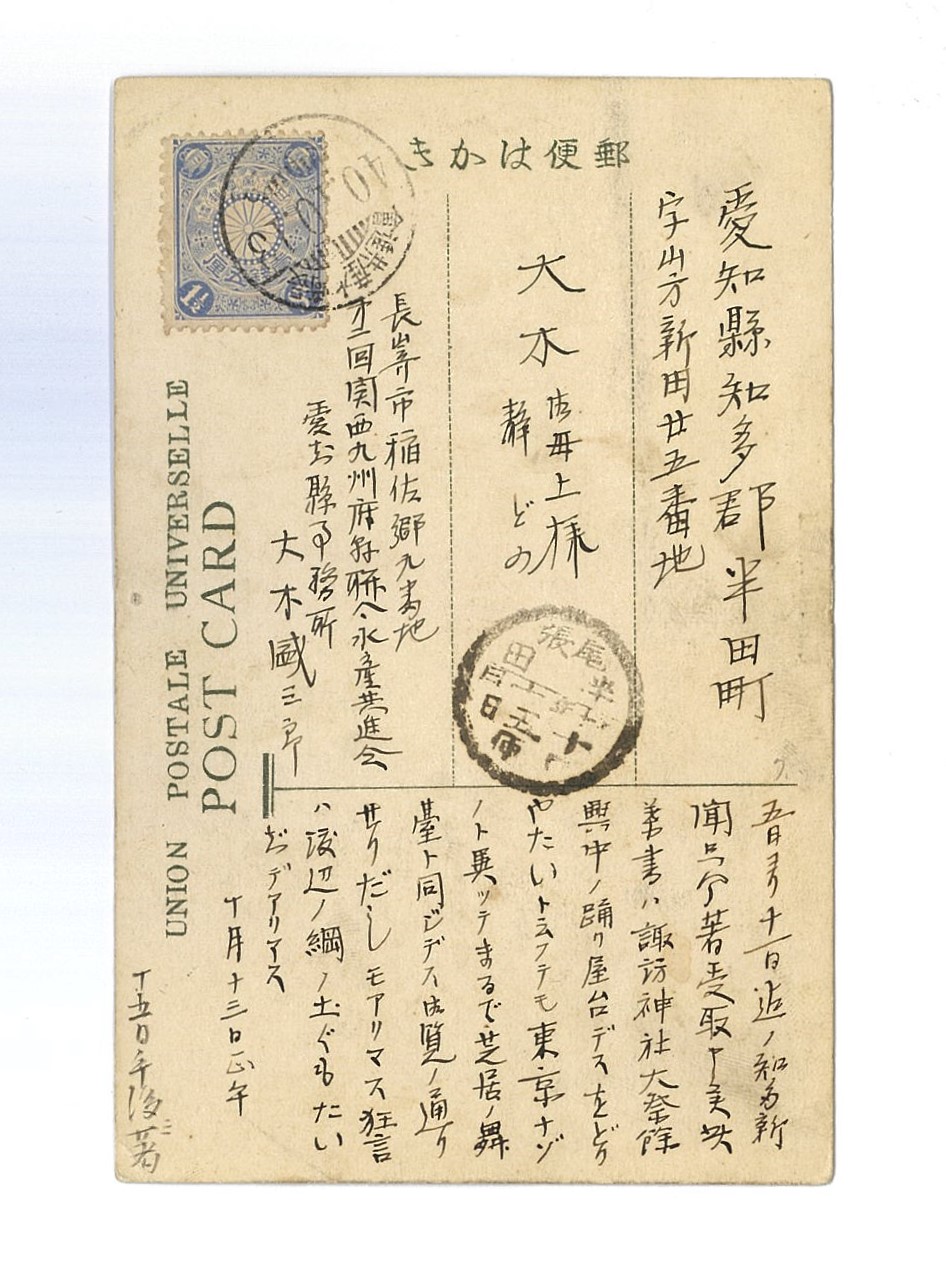 郵便はかき
愛知縣知多郡半田町
字山方新田廿五番地
大木御母上様
静どの
長崎市稲佐郷九番地
才二回関西九州府県聯合水産共進会
愛知縣事務所
大木國三郎
尾張
半田
五日ヨリ十一日迄ノ知多新
聞只今着受取申矣此
美書ハ諏訪神社大祭餘
興中ノ踊リ屋台デスをどり
やたいト云フテモ東京ナゾ
ノト異ッテまるで芝居ノ舞
臺ト同ジデス御覧ノ通リ
せりだしモアリマス狂言
ハ渡辺ノ綱ノ土ぐもたい
ぢデアリマス
十月十三日正午
十五日午後ニ着
UNION POSTALE UNIVERSELLE
POST CARD
40.10.
1½